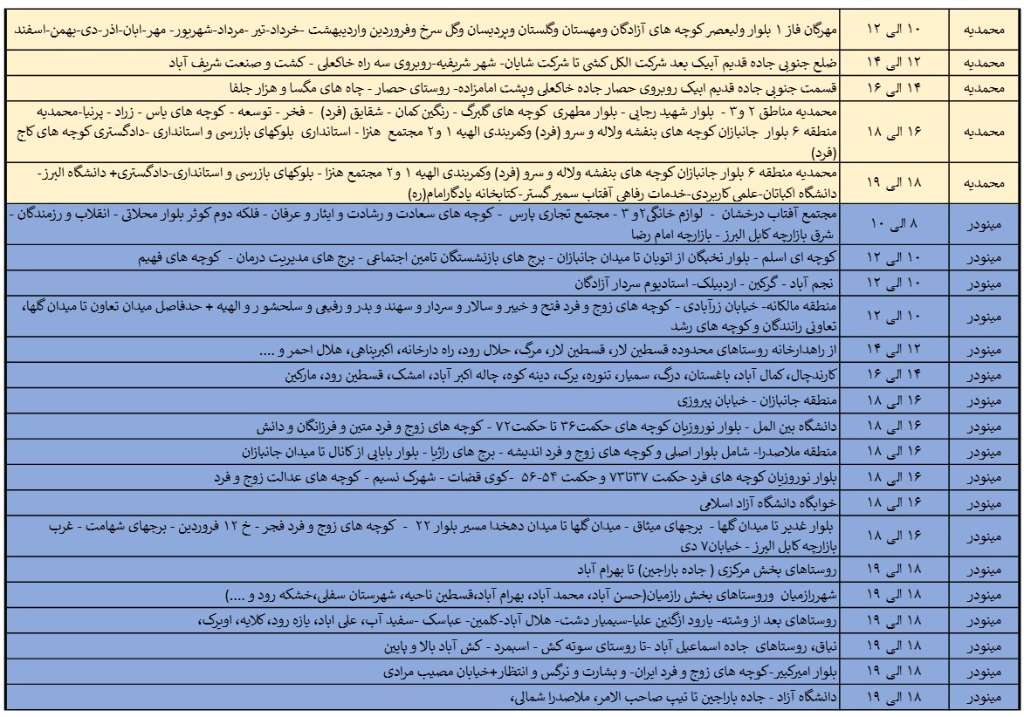 محمدیه ۱۰ الی ۱۲ مهرگان فاز ۱ بلوار ولیعصر کوچه های آزادگان ومهستان وگلستان وپردیسان وگل سرخ وفروردین واردیبهشت -خرداد-تیر -مرداد-شهریور- مهر-ابان-اذر-دی-بهمن-اسفند
محمدیه ۱۲ الی ۱۴ ضلع جنوبی جاده قدیم آبیک بعد شرکت الکل کشی تا شرکت شایان- شهر شریفیه-روبروی سه راه خاکعلی - کشت و صنعت شریف آباد
محمدیه ۱۴ الی ۱۶ قسمت جنوبی جاده قدیم ابیک روبروی حصار جاده خاکعلی وپشت امامزاده- روستای حصار - چاه های مگسا و هزار جلفا
محمدیه ۱۶ الی ۱۸ محمدیه مناطق ۲ و۳ - بلوار شهید رجایی - بلوار مطهری کوچه های گلبرگ - رنگین کمان - شقایق (فرد) - فخر - توسعه - کوچه های یاس - زراد - پرنیا-محمدیه
منطقه ۶ بلوار جانبازان کوچه های بنفشه ولاله و سرو (فرد) وکمربندی الهیه ۱ و۲ مجتمع هنزا - استانداری بلوکهای بازرسی و استانداری -دادگستری کوچه های کاج
(فرد)
محمدیه ۱۸ الی ۱۹ محمدیه منطقه ۶ بلوار جانبازان کوچه های بنفشه ولاله و سرو (فرد) وکمربندی الهیه ۱ و۲ مجتمع هنزا - بلوکهای بازرسی و استانداری-دادگستری+ دانشگاه البرز-
دانشگاه اکباتان-علمی کاربردی-خدمات رفاهی آفتاب سمیر گستر-کتابخانه یادگارامام(ره)
مینودر ۸ الی ۱۰ مجتمع آفتاب درخشان - لوازم خانگی۲و ۳ - مجتمع تجاری پارس - کوچه های سعادت و رشادت و ایثار و عرفان - فلکه دوم کوثر بلوار محلاتی - انقلاب و رزمندگان -
شرق بازارچه کابل البرز - بازارچه امام رضا
مینودر ۱۰ الی ۱۲ کوچه ای اسلم - بلوار نخبگان از اتوبان تا میدان جانبازان - برج های بازنشستگان تامین اجتماعی - برج های مدیریت درمان - کوچه های فهیم
مینودر ۱۰ الی ۱۲ نجم آباد - گرکین - اردبیلک- استادیوم سردار آزادگان
مینودر ۱۰ الی ۱۲ منطقه مالکانه- خیابان زرآبادی - کوچه های زوج و فرد فتح و خیبر و سالار و سردار و سهند و بدر و رفیعی و سلحشو ر و الهیه + حدفاصل میدان تعاون تا میدان گلها،
تعاونی رانندگان و کوچه های رشد
مینودر ۱۲ الی ۱۴ از راهدارخانه روستاهای محدوده قسطین لار، قسطین لار، مرگ، حلال رود، راه دارخانه، اکبرپناهی، هلال احمر و ....
مینودر ۱۴ الی ۱۶ کارندچال، کمال آباد، باغستان، درگ، سمیار، تنوره، یرک، دینه کوه، چاله اکبر آباد، امشک، قسطین رود، مارکین
مینودر ۱۶ الی ۱۸ منطقه جانبازان - خیابان پیروزی
مینودر ۱۶ الی ۱۸ دانشگاه بین المل - بلوار نوروزیان کوچه های حکمت۳۶ تا حکمت۷۲ - کوچه های زوج و فرد متین و فرزانگان و دانش
مینودر ۱۶ الی ۱۸ منطقه ملاصدرا- شامل بلوار اصلی و کوچه های زوج و فرد اندیشه - برج های راژیا - بلوار بابایی از کانال تا میدان جانبازان
مینودر ۱۶ الی ۱۸ بلوار نوروزیان کوچه های فرد حکمت ۳۷تا۷۳ و حکمت ۵۴-۵۶ -کوی قضات - شهرک نسیم - کوچه های عدالت زوج و فرد
مینودر ۱۶ الی ۱۸ خوابگاه دانشگاه آزاد اسلامی
مینودر ۱۶ الی ۱۸ بلوار غدیر تا میدان گلها - برجهای میثاق - میدان گلها تا میدان دهخدا مسیر بلوار ۲۲ - کوچه های زوج و فرد فجر - خ ۱۲ فروردین - برجهای شهامت - غرب
بازارچه کابل البرز - خیابان۷ دی
مینودر ۱۸ الی ۱۹ روستاهای بخش مرکزی ( جاده باراجین) تا بهرام آباد
مینودر ۱۸ الی ۱۹ شهررازمیان وروستاهای بخش رازمیان(حسن آباد، محمد آباد، بهرام آباد،قسطین ناحیه، شهرستان سفلی،خشکه رود و ....)
مینودر ۱۸ الی ۱۹ روستاهای بعد از وشته- یارود ازگنین علیا-سیمیار دشت- هلال آباد-کلمین- عباسک -سفید آب، علی اباد، یازه رود، کلایه، اویرک،
مینودر ۱۸ الی ۱۹ نیاق، روستاهای جاده اسماعیل آباد -تا روستای سوته کش - اسبمرد - کش آباد بالا و پایین
مینودر ۱۸ الی ۱۹ بلوار امیرکبیر-کوچه های زوج و فرد ایران- و بشارت و نرگس و انتظار+خیابان مصیب مرادی
مینودر ۱۸ الی ۱۹ دانشگاه آزاد - جاده باراجین تا تیپ صاحب الامر، ملاصدرا شمالی،